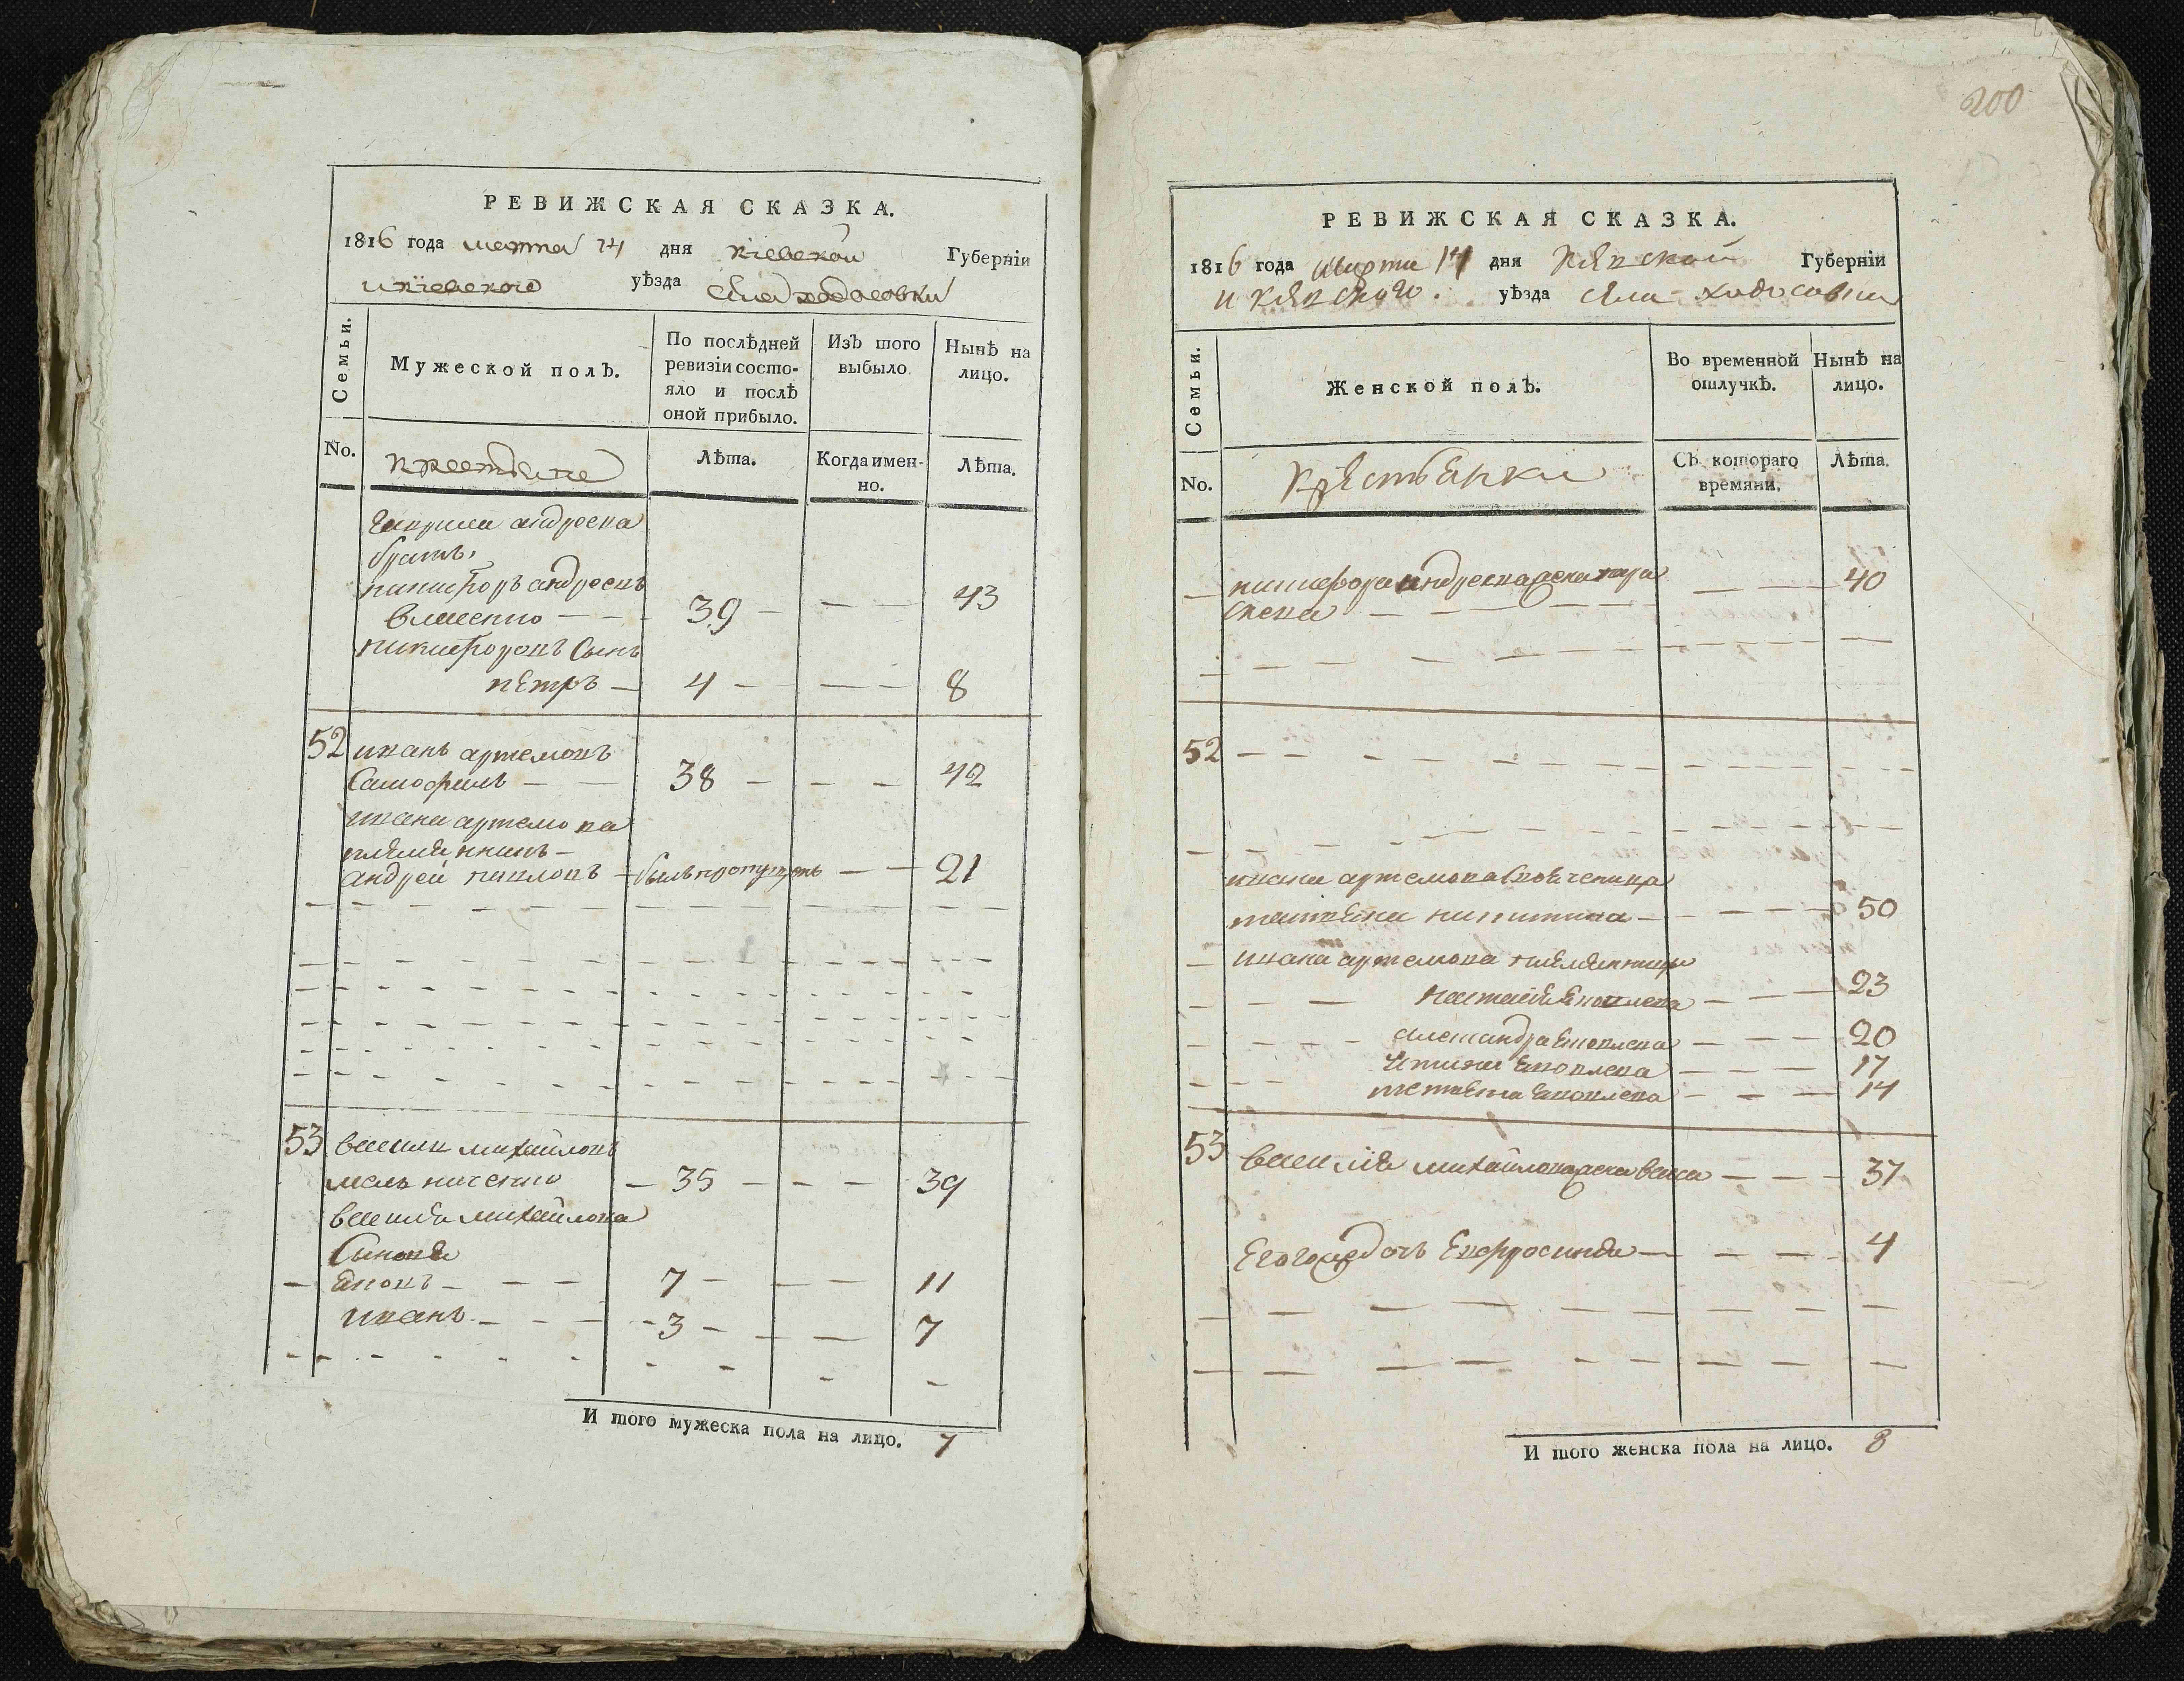 РЕВИЖСКАЯ СКАЗКА.
1816 года марта 14 дня киевской Губернїи
и киевского уѣзда села ходосовки
Семьи.
Мужеской полъ.
По послѣдней ревизїи состояло и послѣ оной прибыло.
Изъ того выбыло
Нынѣ на лицо.
No.
крестьяне
Лѣта.
Когда именно.
Лѣта.
гаврила андреева
братъ
никифоръ андреевъ
39 43
никифоровъ Сынъ
петръ 4 8
52 иванъ артемовъ
38 42
ивана артемова
племянникъ
андрей павловъ былъ пропущенъ 21
53 василий михайловъ
35 39
василия михайлова
Сыновя
яковъ 7 11
иванъ 3 7
И того мужеска пола на лицо. 7
200
РЕВИЖСКАЯ СКАЗКА.
1816 года марта 14 дня киевской Губернїи
и киевского уѣзда села ходосовки
Семьи.
Женской полъ.
Во временной отлучкѣ.
Нынѣ на лицо.
No.
крестьянки
Съ котораго времяни.
Лѣта.
никифора андреева жена пара
скева 40
52
ивана артемова
никитина 50
ивана артемова племянницы
23
яковлева 20
яковлева 17
яковлева 14
53 василия михайлова жена васса 37
Его дочь Евфросиния 4
И того женска пола на лицо. 8